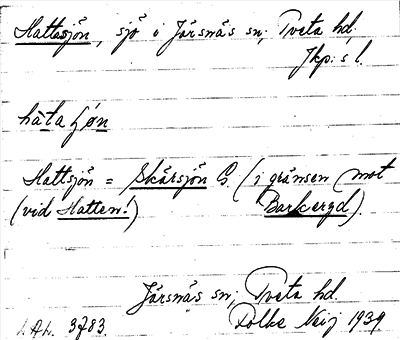 Hattasjön, sjö i Järsnäs sn; Tveta hd.
Jkp:s l.
Hattsjön = Skärsjön G. (i gränsen mot
(vid Hatten!) Barkeryd).
Järsnäs sn; Tveta hd.
3783. Folke Neij 1939.